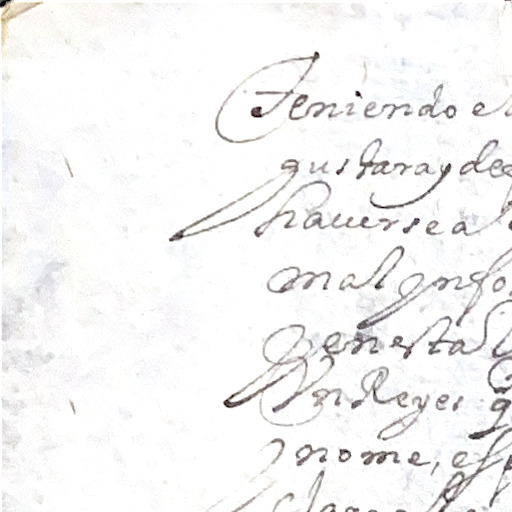 Teniendo e
gustaray de
hauerse a
mal ynfo
y en esta
Reyes q
y no me, esp